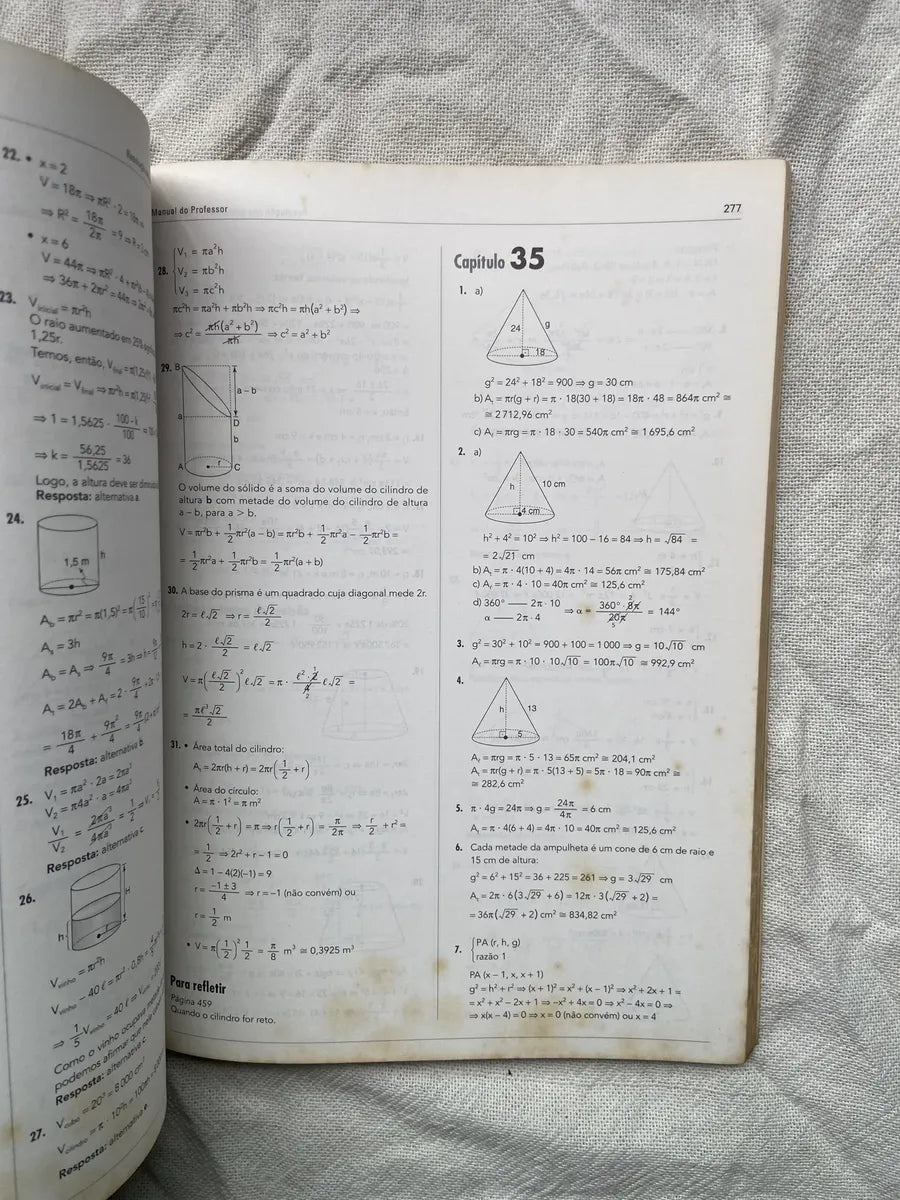 22. • x = 2
V = 18π ⇒ πR² · 2 = 18π ⇒
⇒ R² = 18π/2π = 9 ⇒ R = 3
• x = 6
V = 44π ⇒ πR² · 6
⇒ 36π + 2πr² = 44π ⇒ 2πr²
23. V inicial = πr²h
O raio aumentado em 25%
1,25r.
Temos, então, V final = π(1,25r)²
V inicial = V final ⇒ πr²h = π(1,25r)²
⇒ 1 = 1,5625 · (100 – k)/100
⇒ k = 56,25/1,5625 = 36
Logo, a altura deve ser
Resposta: alternativa a.
24.
1,5 m
h
A_b = πr² = π(1,5)² = π(15/10)²
A_s = 3h
A_b = A_s ⇒ 9π/4 = 3h ⇒ h =
A_t = 2A_b + A_ℓ = 2 · 9π/4 +
= 18π/4 + 9π²/4 = 9π/4
Resposta: alternativa b.
25. V₁ = πa² · 2a = 2πa³
V₂ = π4a² · a = 4πa³
V₁/V₂ = 2πa³/4πa³ = 1/2 ⇒
Resposta: alternativa c
26.
H
h
V vinho = πr²h
V vinho – 40 ℓ = πr² · 0,8h =
⇒ 1/5 V vinho = 40 ℓ ⇒ V vinho =
Como o vinho ocupava metade
podemos afirmar que
Resposta: alternativa c
27. V cubo = 20³ = 8 000 cm³
V cilindro = π · 10²h = 100πh
Resposta: alternativa e
Manual do Professor
277
28. {V₁ = πa²h
V₂ = πb²h
V₃ = πc²h
πc²h = πa²h + πb²h ⇒ πc²h = πh(a² + b²) ⇒
⇒ c² = πh(a² + b²)/πh ⇒ c² = a² + b²
29. B
a – b
a
D
b
r
A
C
O volume do sólido é a soma do volume do cilindro de
altura b com metade do volume do cilindro de altura
a – b, para a > b.
V = πr²b + 1/2 πr²(a – b) = πr²b + 1/2 πr²a – 1/2 πr²b =
= 1/2 πr²a + 1/2 πr²b = 1/2 πr²(a + b)
30. A base do prisma é um quadrado cuja diagonal mede 2r.
2r = ℓ√2 ⇒ r = ℓ√2/2
h = 2 · ℓ√2/2 = ℓ√2
V = π(ℓ√2/2)² ℓ√2 = π · ℓ² · 2/4 ℓ√2 =
= πℓ³√2/2
31. • Área total do cilindro:
A_t = 2πr(h + r) = 2πr(1/2 + r)
• Área do círculo:
A = π · 1² = π m²
• 2πr(1/2 + r) = π ⇒ r(1/2 + r) = π/2π ⇒ r/2 + r² =
= 1/2 ⇒ 2r² + r – 1 = 0
Δ = 1 – 4(2)(–1) = 9
r = (–1 ± 3)/4 ⇒ r = –1 (não convém) ou
r = 1/2 m
• V = π(1/2)² 1/2 = π/8 m³ ≅ 0,3925 m³
Para refletir
Página 459
Quando o cilindro for reto.
Capítulo 35
1. a)
24
g
18
g² = 24² + 18² = 900 ⇒ g = 30 cm
b) A_t = πr(g + r) = π · 18(30 + 18) = 18π · 48 = 864π cm² ≅
≅ 2 712,96 cm²
c) A_ℓ = πrg = π · 18 · 30 = 540π cm² ≅ 1 695,6 cm²
2. a)
h
10 cm
4 cm
h² + 4² = 10² ⇒ h² = 100 – 16 = 84 ⇒ h = √84 =
= 2√21 cm
b) A_t = π · 4(10 + 4) = 4π · 14 = 56π cm² ≅ 175,84 cm²
c) A_ℓ = π · 4 · 10 = 40π cm² ≅ 125,6 cm²
d) 360° —— 2π · 10
α —— 2π · 4
⇒ α = 360° · 8π/20π = 144°
2
5
3. g² = 30² + 10² = 900 + 100 = 1 000 ⇒ g = 10√10 cm
A_ℓ = πrg = π · 10 · 10√10 = 100π√10 ≅ 992,9 cm²
4.
h
13
5
A_ℓ = πrg = π · 5 · 13 = 65π cm² ≅ 204,1 cm²
A_t = πr(g + r) = π · 5(13 + 5) = 5π · 18 = 90π cm² ≅
≅ 282,6 cm²
5. π · 4g = 24π ⇒ g = 24π/4π = 6 cm
A_t = π · 4(6 + 4) = 4π · 10 = 40π cm² ≅ 125,6 cm²
6. Cada metade da ampulheta é um cone de 6 cm de raio e
15 cm de altura:
g² = 6² + 15² = 36 + 225 = 261 ⇒ g = 3√29 cm
A_t = 2π · 6(3√29 + 6) = 12π · 3(√29 + 2) =
= 36π(√29 + 2) cm² ≅ 834,82 cm²
7. {PA (r, h, g)
razão 1
PA (x – 1, x, x + 1)
g² = h² + r² ⇒ (x + 1)² = x² + (x – 1)² ⇒ x² + 2x + 1 =
= x² + x² – 2x + 1 ⇒ –x² + 4x = 0 ⇒ x² – 4x = 0 ⇒
⇒ x(x – 4) = 0 ⇒ x = 0 (não convém) ou x = 4